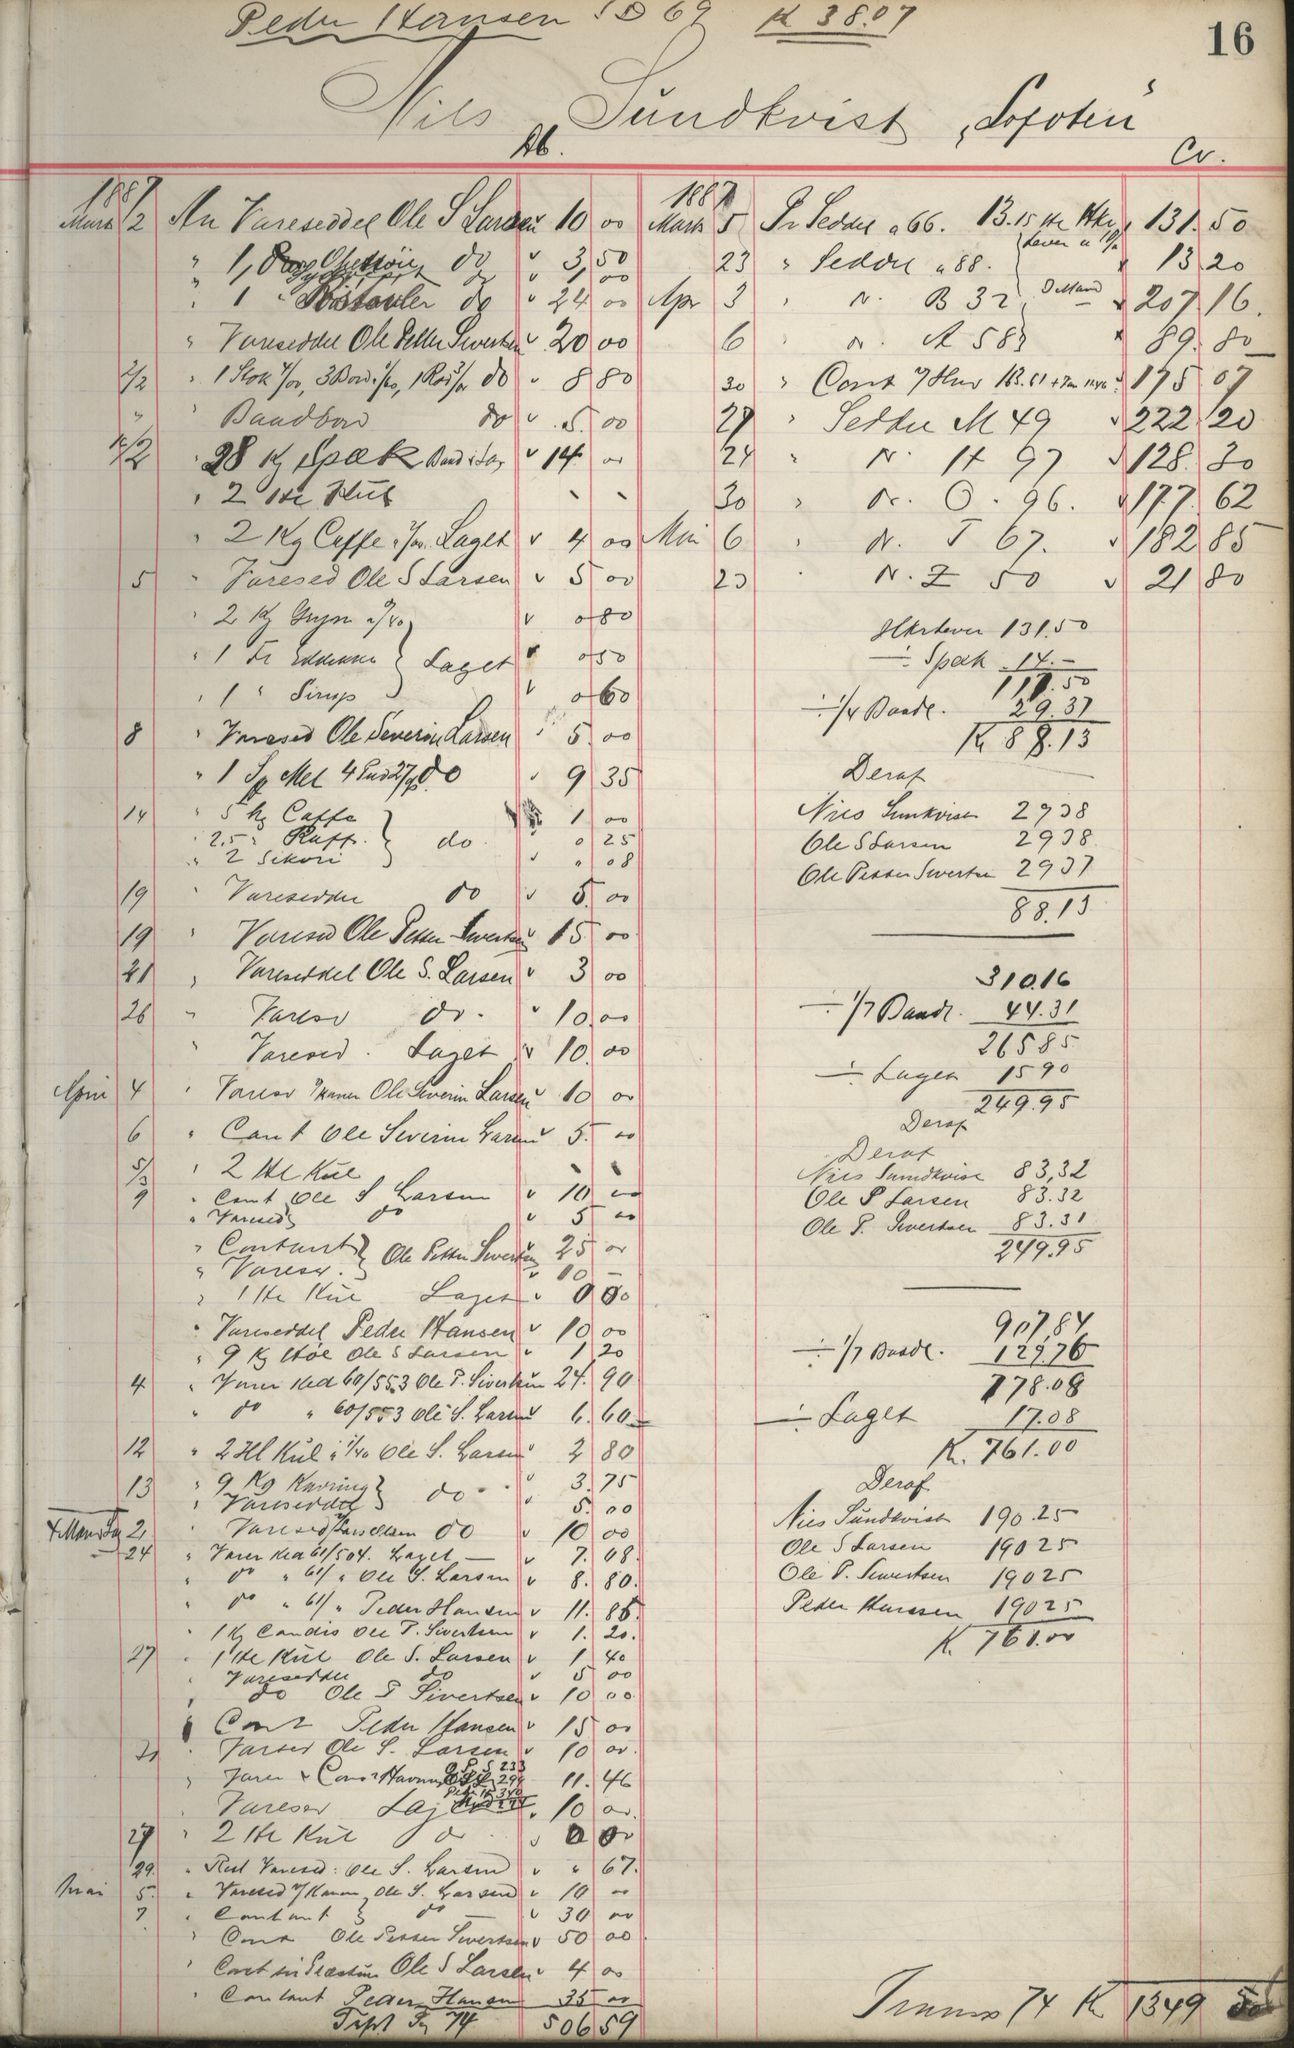 Peder Hansen 69 K 38.07
16
Nils Sundkvist „Lofoten"
Db.
Cr.
1887
Marts 1/2 An Vareseddel Ole S Larsen 10 00
" 1, do 3 50
" do 1 00
" 1 do 24 00
" Vareseddel Ole Petter Sivertsen 20 00
2/2 " 1 Stok 3 Bord 1 do 8 80
" " Baadbord do 5 00
" 28 Kg Spæk 14 "
" 2 Hl Kul
" 2 Kg Caffe Laget 4 00
5 " Varesed Ole S Larsen 5 00
" 2 Kg Gryn 0 80
" 1 Fl Eddikke } Laget 0 50
" 1 " Sirup 0 60
8 " Varesed Ole Severin Larsen 5 00
" 1 Mel do 9 35
14 " 5 Kg Caffe 1 00
" 2,5 " } do 0 25
" 2 Sikori " 08
19 " Vareseddel do 5 00
19 " Varesed Ole Petter Sivertsen 15 00
21 " Vareseddel Ole S. Larsen 3 00
26 " Varesed do. 10 00
" Varesed. Laget 10 00
April 4 " Varesed Ole Severin Larsen 10 00
6 " Cont Ole Severin Larsen 5 00
5/3 " 2 Hl Kul
9 " Cont Ole S Larsen 10 00
" Varesed do 5 00
" Contant } Ole Petter Sivertsen 25 00
" Varesed. 10 –
" 1 Hl Kul Laget 0 00
" Vareseddel Peder Hansen 10 00
" 9 Kg Høe Ole S Larsen 1 20
4 " Varer Ked 60/553 Ole P. Sivertsen 24. 90
" do " 60/553 Ole S. Larsen 6. 60
12 " 2 Hl Kul a 1/40 Ole S. Larsen 2 80
13 " 9 Kg Kavring } do 3. 75
" Vareseddel 5. 00
2, " Varesed do 10 00
24 " Varer Ked 61/504. Laget 7. 08
" do " 61/ " Ole S. Larsen 8. 80.
" do " 61/ " Peder Hansen 11. 85
" 1 Kg Candis Ole P. Sivertsen 1. 20.
27 " 1 Hl Kul Ole S. Larsen 1 40
" Vareseddel do 5 00
" do Ole P Sivertsen 10 00
" Cont Peder Hansen 15 00
" Varsed Ole S. Larsen 10 00
" Varer 11. 46
" Varesed Lag 10 00
27 " 2 Hl Kul do 0 00
29. " Rest Varesed: Ole S. Larsen " 67.
Mai 5. " Varesed Ole S. Larsen 10 00
7 " Contant } do 30 00
" Cont Ole Petter Sivertsen 50 00
" Ole S Larsen 4 00
" Contant Peder Hansen 35 00
74 506 59
1887
Marts 5 Pr Seddel a 66. 13.15 Hl 131. 50
23 " Seddel " 88. 13 20
Apr 3 " N. B 32 207 16.
6 " N. A 583 89. 80
30 " Cont 175 07
29 " Seddel M 49 222 20
24 " N. H 97 128. 30
30 " N. O. 96. 177. 62
Mai 6 " N. T 67. 182 85
23 " N. Z 50 21 80
131.50
÷ Spæk 14.–
117.50
÷ 1/4 Baadl. 29.37
K 88.13
Deraf
Nils Sunkvist 29 38
Ole S Larsen 29 38
Ole Petter Sivertsen 29 37
88.13
310.16
÷ 1/7 Baadl. 44.31
265 85
÷ Laget 15 90
249.95
Deraf
Deraf
Nils Sundkvist 83,32
Ole S Larsen 83.32
Ole P. Sivertsen 83.31
249.95
907 84
÷ 1/7 Baadl. 129.76
778.08
÷ Laget 17.08
K. 761.00
Deraf
Nils Sundkvist 190.25
Ole S Larsen 190 25
Ole P. Sivertsen 190 25
Peder Hansen 190 25
K 761.00
Transp 74 K 1349